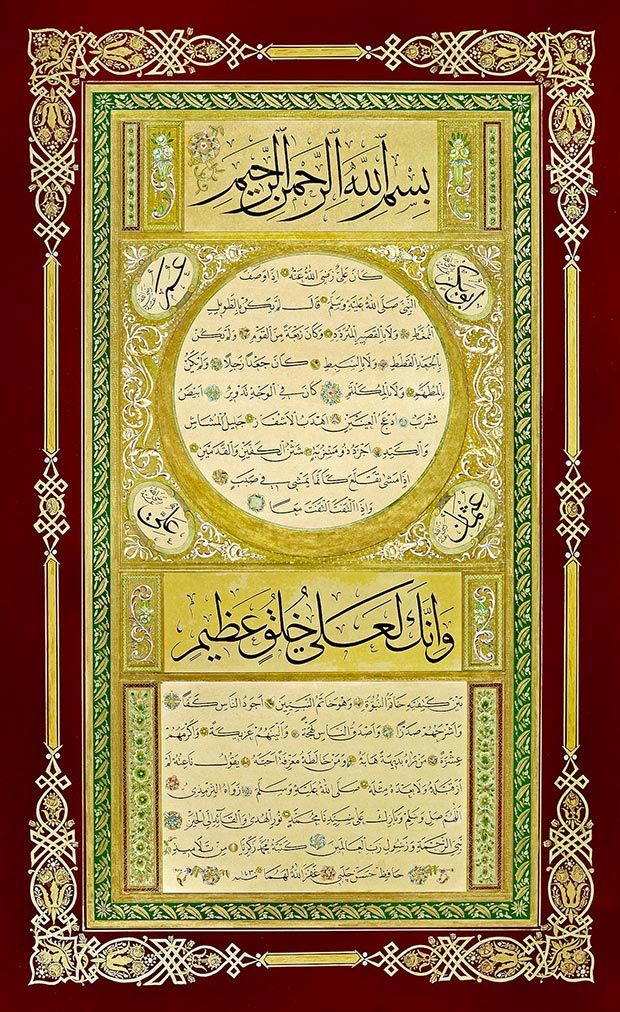 بِسْمِ اللهِ الرَّحْمٰنِ الرَّحِيمِ
ابوبكر
عمر
كَانَ عَلِىٌّ رَضِىَ اللهُ عَنْهُ اِذَا وَصَفَ
النَّبِىَّ صَلَّى اللهُ عَلَيْهِ وَسَلَّمَ قَالَ لَمْ يَكُنْ بِالطَّوِيلِ
الْمُمَّغِطِ وَلَا بِالْقَصِيرِ الْمُتَرَدِّدِ وَكَانَ رَبْعَةً مِنَ الْقَوْمِ وَلَمْ يَكُنْ
بِالْجَعْدِ الْقَطَطِ وَلَا بِالسَّبِطِ كَانَ جَعْدًا رَجِلًا وَلَمْ يَكُنْ
بِالْمُطَهَّمِ وَلَا بِالْمُكَلْثَمِ وَكَانَ فِى الْوَجْهِ تَدْوِيرٌ اَبْيَضُ
مُشْرَبٌ اَدْعَجُ الْعَيْنَيْنِ اَهْدَبُ الْاَشْفَارِ جَلِيلُ الْمُشَاشِ
وَالْكَتِدِ اَجْرَدُ ذُو مَسْرُبَةٍ شَثْنُ الْكَفَّيْنِ وَالْقَدَمَيْنِ
اِذَا مَشٰى تَقَلَّعَ كَاَنَّمَا يَمْشِى فِى صَبَبٍ
وَاِذَا الْتَفَتَ الْتَفَتَ مَعًا
عثمان
على
وَاِنَّكَ لَعَلٰى خُلُقٍ عَظِيمٍ
بَيْنَ كَتِفَيْهِ خَاتَمُ النُّبُوَّةِ وَهُوَ خَاتَمُ النَّبِيِّينَ اَجْوَدُ النَّاسِ كَفًّا
وَاَشْرَحُهُمْ صَدْرًا وَاَصْدَقُ النَّاسِ لَهْجَةً وَاَلْيَنُهُمْ عَرِيكَةً وَاَكْرَمُهُمْ
عِشْرَةً مَنْ رَاٰهُ بَدِيهَةً هَابَهُ وَمَنْ خَالَطَهُ مَعْرِفَةً اَحَبَّهُ يَقُولُ نَاعِتُهُ لَمْ
اَرَ قَبْلَهُ وَلَا بَعْدَهُ مِثْلَهُ صَلَّى اللهُ عَلَيْهِ وَسَلَّمَ رَوَاهُ التِّرْمِذِى
اَللّٰهُمَّ صَلِّ وَسَلِّمْ وَبَارِكْ عَلٰى سَيِّدِنَا مُحَمَّدٍ نُورِ الْهُدٰى وَالْقَائِدِ اِلَى الْخَيْرِ
نَبِىِّ الرَّحْمَةِ وَرَسُولِ رَبِّ الْعَالَمِينَ كَتَبَهُ مِنْ تَلَامِيذِ
حَافِظ حَسَن چَلَبِى غَفَرَ اللهُ لَهُمَا